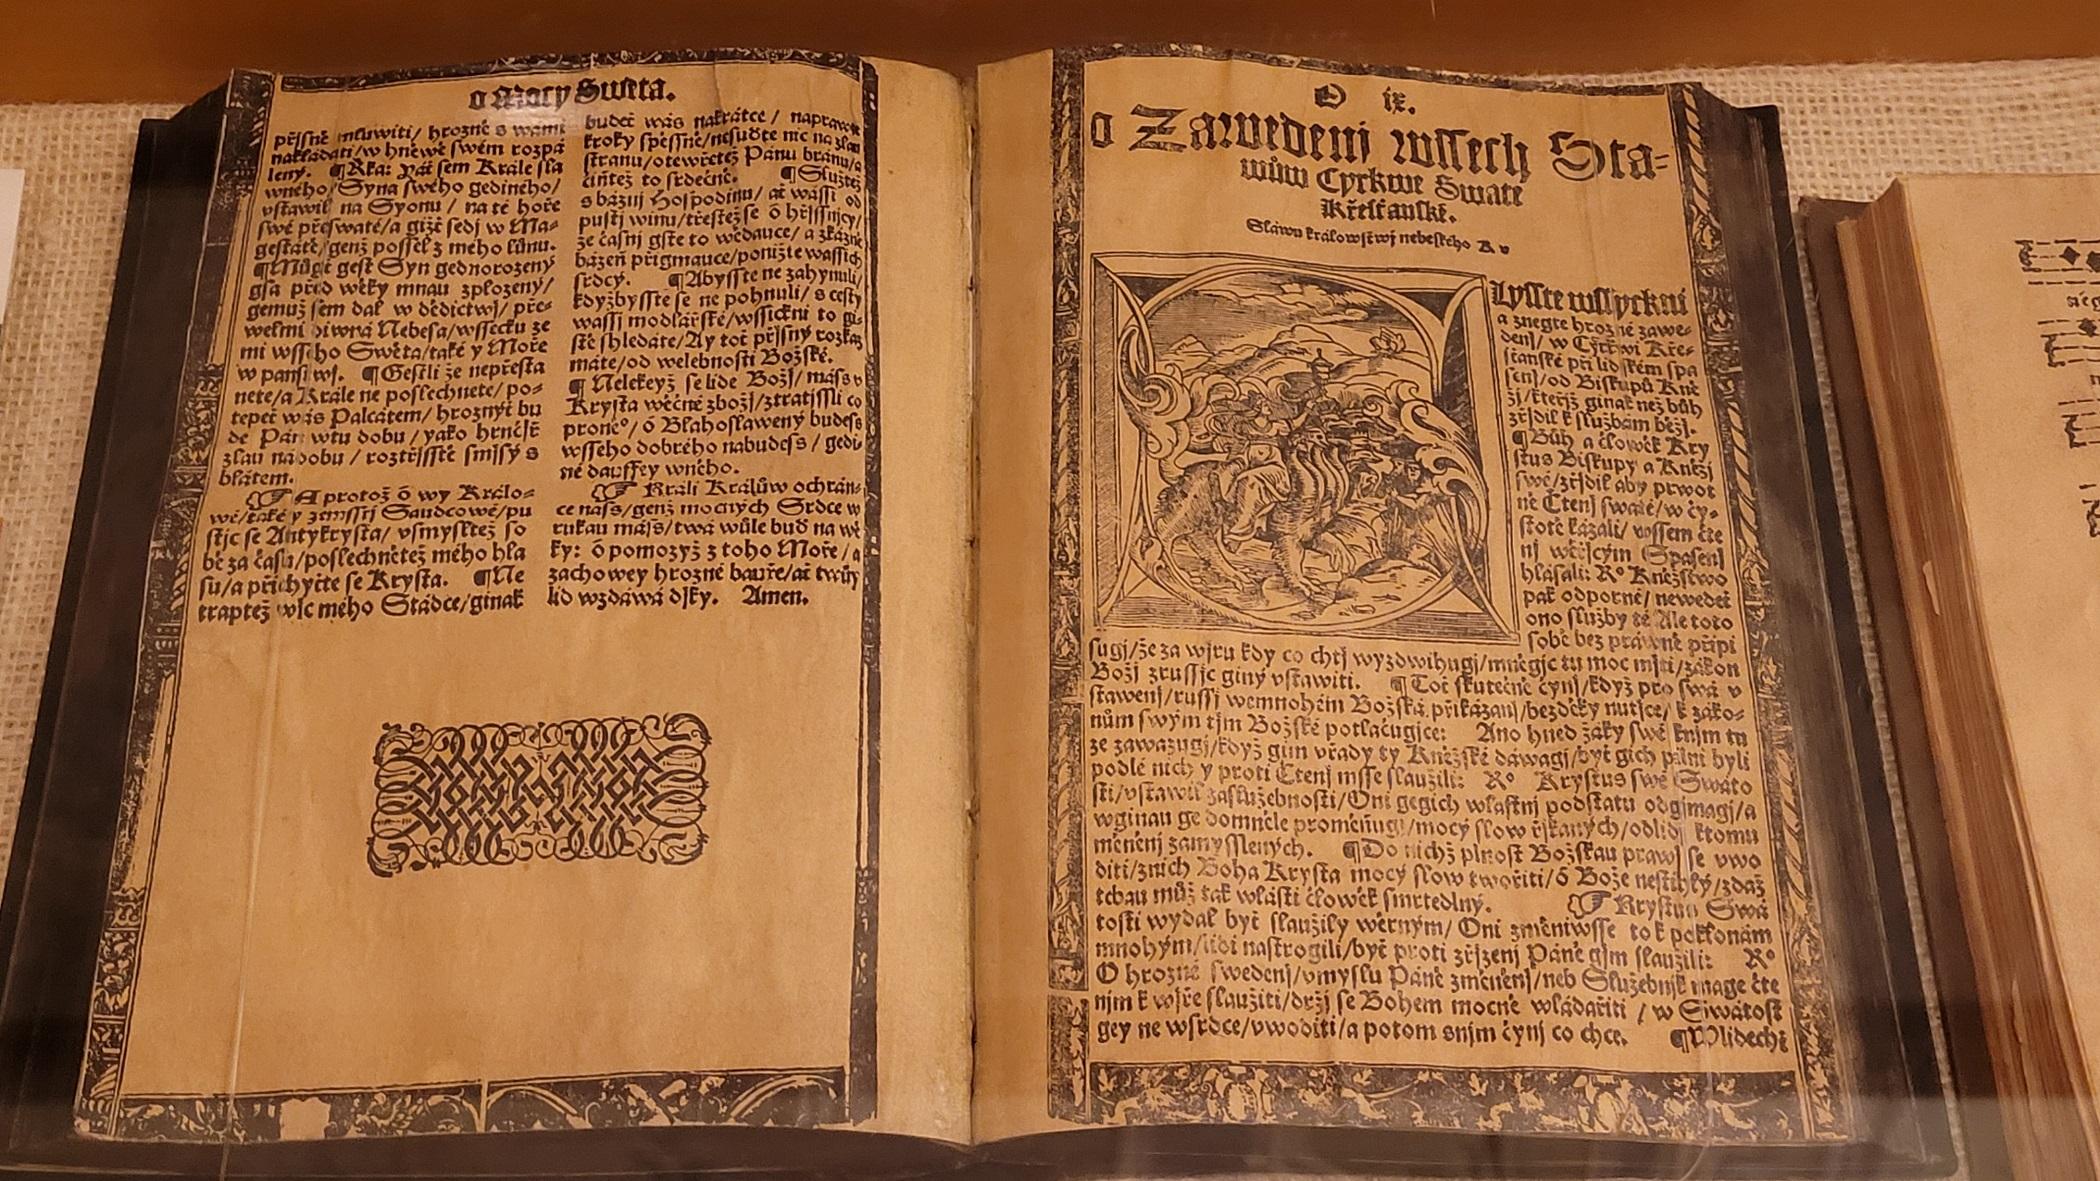 o Mocy Swěta.
přjsně mluwiti/ hrozně s wámi
nakládati/w hněwě swém rozpá
leny. ¶Rka: Yát sem Krále sla
wného/Syna swého gediného/
vstawil na Syonu / na té hoře
swé přeswaté/a gižť sedj w Ma-
gestátě/genž possel z mého lůnu.
¶Můgť gest Syn gednorozený
gsa před wěky mnau zplozený/
gemuž sem dal w dědictwj/ pře-
welmi diwná Nebesa/wssecku ze
mi wsseho Swěta/také y Moře
w panstwj. ¶Gestli že nepřesta
nete/a Krále ne poslechnete/ po-
tepeť wás Palcátem/ hroznýť bu
de Pán wtu dobu / yako hrnčjř
zlau nádobu / roztřjsstě smjsý s
blátem.
☞ A protož ó wy Králo-
wé/také y zemsstj Saudcowé/pu
stjc se Antykrysta/ vsmysltež so
bě za času/poslechnětež mého hla
su/a přichyťte se Krysta. ¶Ne
traptež wjc mého Stádce/ginak
budeť wás nakrátce / naprawte
kroky spěssně/nesuďte nic na zlau
stranu/otewřetež Pánu bránu/a
čiňtež to srdečně. ¶Služtež
s báznj Hospodinu/ ať wássi od
pustj winu/třestež se ó hřjssnjcy/
že časnj gste to wědauce/ a zkázně
bázeň přigmauce/ponižte wassich
srdcý. ¶Abysste ne zahynuli/
kdyžbysste se ne pohnuli/ s cesty
wassj modlářské/wssickni to gi-
stě shledáte/Ay toť přjsný rozkaz
máte/od welebnosti Božské.
¶ Nelekeyž se lide Božj/ máss v
Krysta wěčné zbožj/ztratjssli co
proněº/ ó Blahoslawený budess
wsseho dobrého nabudess / gedi-
né dauffey wněho.
☞ Králi Králůw ochrán-
ce náss/genž mocných Srdce w
rukau máss/twá wůle buď na wě
ky: ó pomozyž z toho Moře / a
zachowey hrozné bauře/ať twůy
lid wzdáwá djky. Amen.
O ix.
o Zawedenj wssech Sta-
wůw Cyrkwe Swaté
Křesťanské.
Sláwu králowstwj nebeského
lysste wssyckni
a znegte hrozné zawe-
denj/ w Cýrkwi Kře-
sťanské při lidském spa
senj/od Biskupů Kně
žj/kteřjž ginak než bůh
zřjdil k službám běžj.
¶Bůh a člowěk Kry
stus Biskupy a Kněžj
swé/zřjdil aby prwot
ně Čtenj swaté/ w čy-
stotě kázali/ wssem čte
nj wěřjcým Spasenj
hlásali: Rº Kněžstwo
pak odporné/ newedeť
ono služby té/Ale toto
sobě bez práwně připi
sugj/že za wjru kdy co chtj wyzdwihugj/mněgjc tu moc mjti/zákon
Božj zrussjc giný vstawiti. ¶Toť skutečně čynj/když pro swá v
stawenj/russj wemnohém Božská přikázanj/bezděky nutjce/ k záko-
nům swým tjm Božské potlačugjce: Ano hned žáky swé knjm tu
ze zawazugj/když gim vřady ty Kněžské dáwagj/byť gich pilni byli
podlé nich y proti Čtenj msse slaužili: Rº Krystus swé Swáto
sti/vstawil zaslužebnosti/Oni gegich wlastnj podstatu odgjmagj/a
wginau ge domněle proměňugj/mocý slow řjkaných/odlidj ktomu
měněnj zamysslených. ¶Do nichž plnost Božskau prawj se vwo
diti/znich Boha Krysta mocý slow twořiti/ó Bože nestihlý/zdaž
tebau můž tak wlásti člowěk smrtedlný. ☞ Krystus Swá
tosti wydal byť slaužily wěrným/ Oni změniwsse to k poklonám
mnohým/lidi nastrogili/byť proti zřjzenj Páně gim slaužili: Rº
O hrozné swedenj/vmyslu Páně změněnj/neb Služebnjk mage čte
njm k wjře slaužiti/držj se Bohem mocně wládařiti / w Swátost
gey ne wsrdce/vwoditi/a potom snjm čynj co chce. ¶Wlidechť